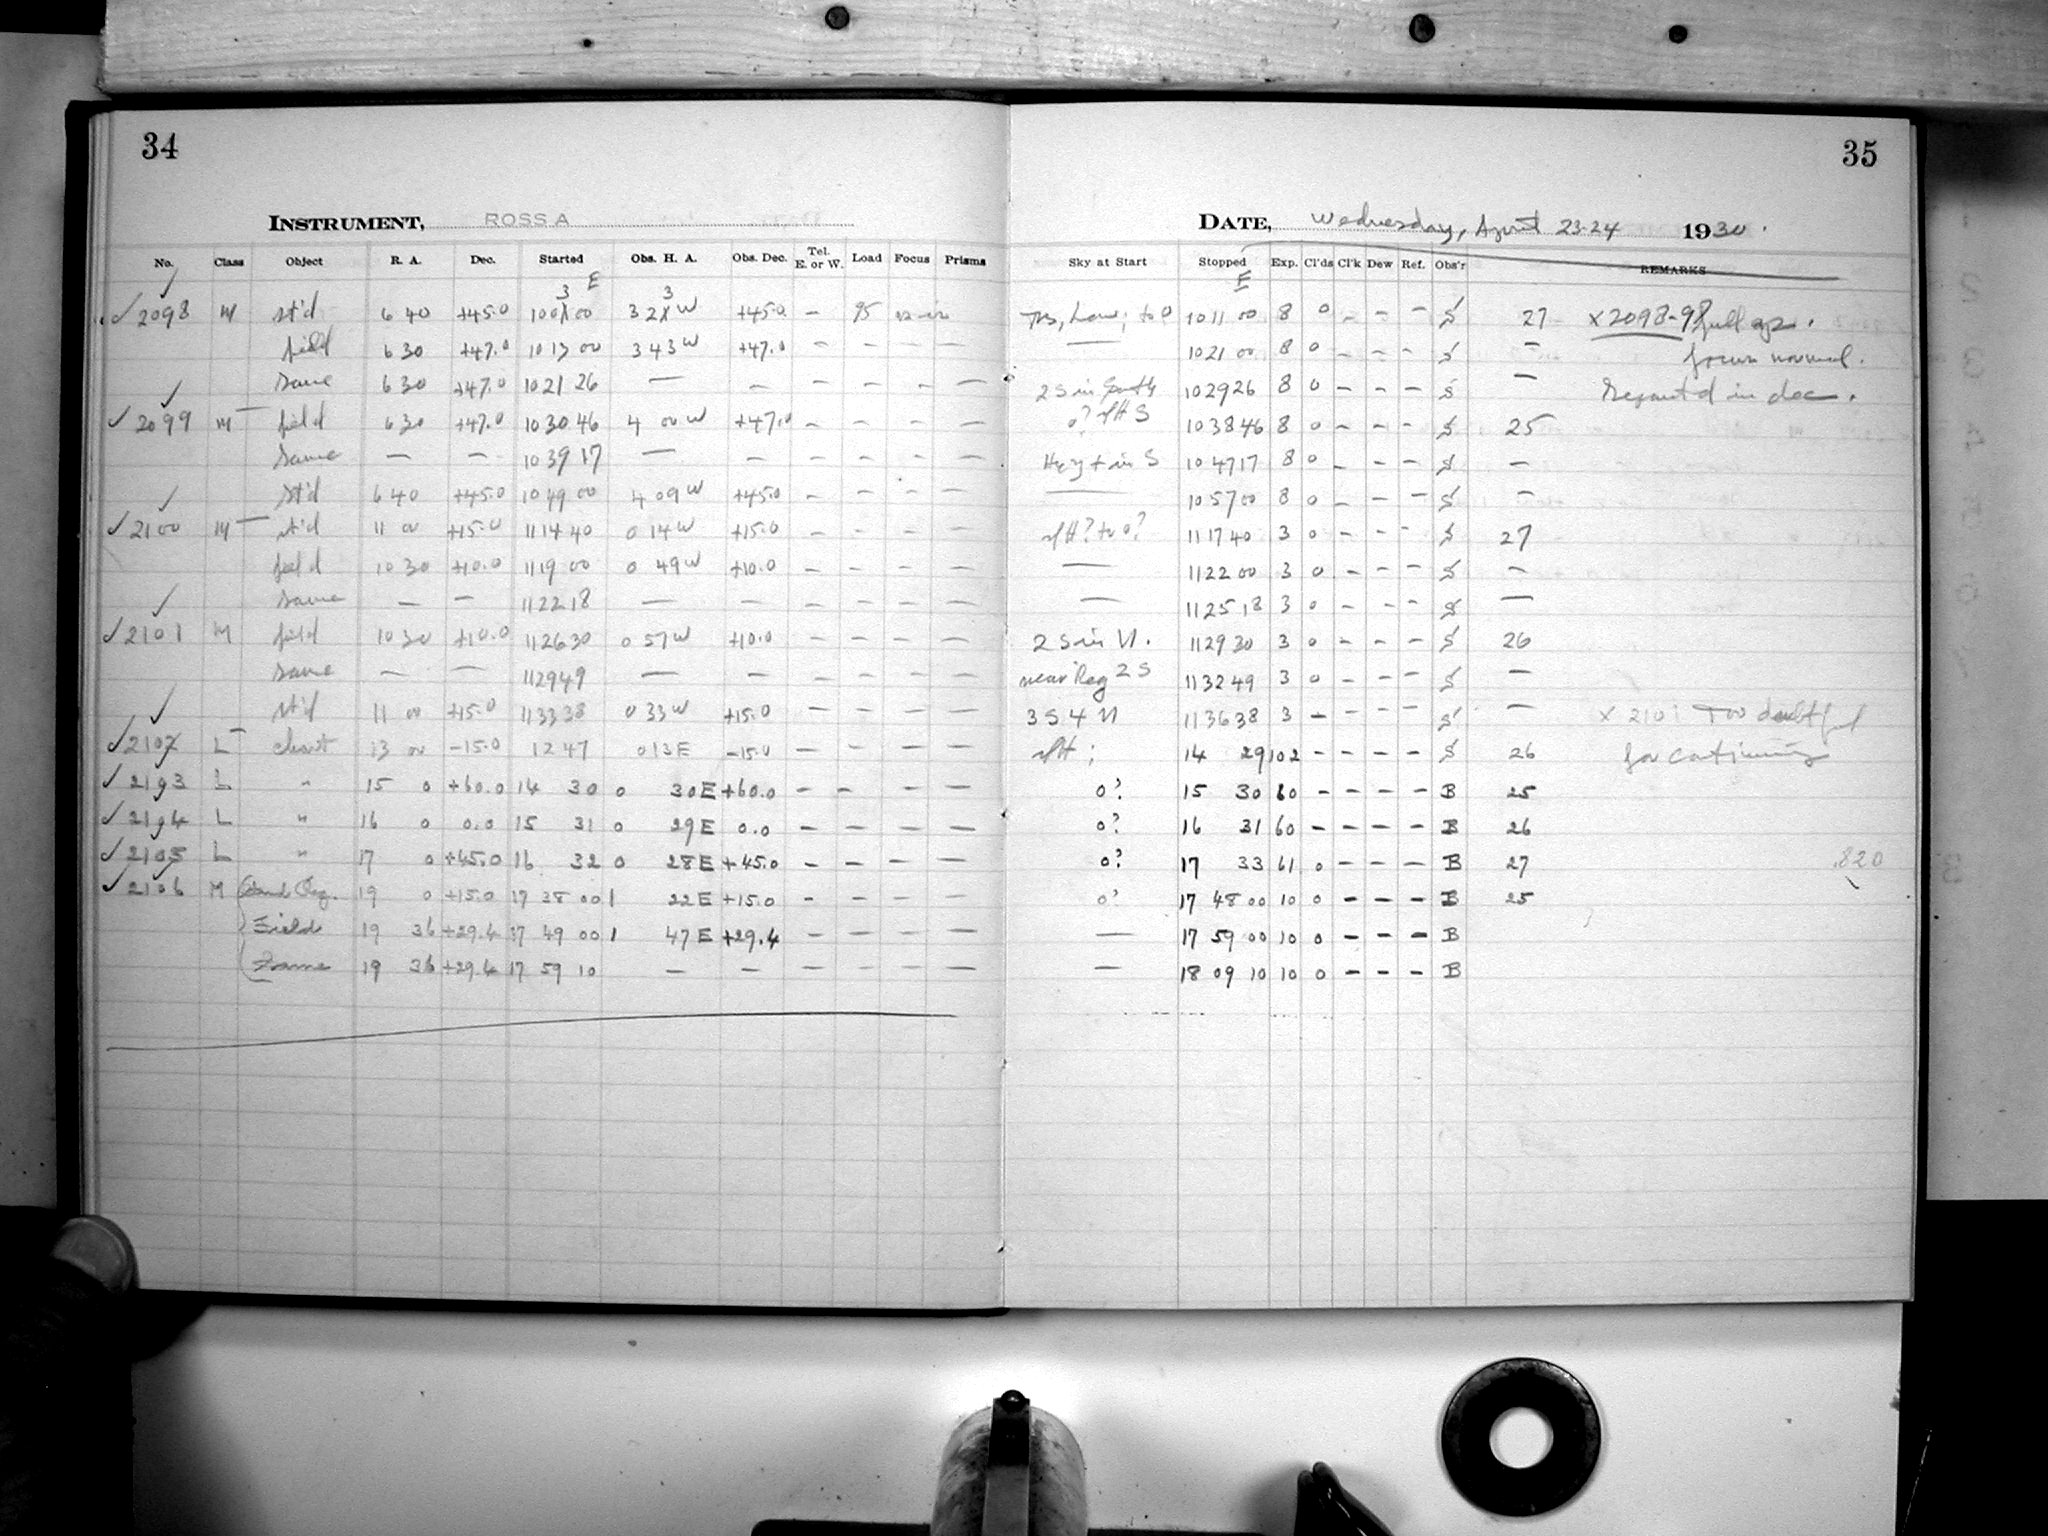 34
INSTRUMENT, ROSS A
No. Class Object R. A. Dec. Started Obs. H. A. Obs. Dec. Tel. E. or W. Load Focus Prisms
3 E 3
✓ 2098 M st'd 6 40 +45.0 10 0X 00 3 2X W +45.0 — 95
field 6 30 +47.0 10 13 00 3 43 W +47.0 — — — —
Same 6 30 +47.0 10 21 26 — — — — — —
✓ 2099 M field 6 30 +47.0 10 30 46 4 00 W +47.0 — — — —
Same — — 10 39 17 — — — — — —
st'd 6 40 +45.0 10 49 00 4 09 W +45.0 — — — —
✓ 2100 M st'd 11 00 +15.0 11 14 40 0 14 W +15.0 — — — —
field 10 30 +10.0 11 19 00 0 49 W +10.0 — — — —
Same — — 11 22 18 — — — — — —
✓ 2101 M field 10 30 +10.0 11 26 30 0 57 W +10.0 — — — —
Same — — 11 29 49 — — — — — —
st'd 11 00 +15.0 11 33 38 0 33 W +15.0 — — — —
✓ 2102 L chart 13 00 -15.0 12 47 0 13 E -15.0 — — — —
✓ 2103 L " 15 0 +60.0 14 30 0 30 E +60.0 — — — —
✓ 2104 L " 16 0 0.0 15 31 0 29 E 0.0 — — — —
✓ 2105 L " 17 0 +45.0 16 32 0 28 E +45.0 — — — —
✓ 2106 M 19 0 +15.0 17 38 00 1 22 E +15.0 — — — —
Field 19 36 +29.4 17 49 00 1 47 E +29.4 — — — —
Same 19 36 +29.4 17 59 10 — — — — — —
35
DATE, Wednesday, April 23-24 1930.
Sky at Start Stopped Exp. Cl'ds Cl'k Dew Ref. Obs'r REMARKS
E
10 11 00 8 0 — — — S 27 X 2098-98 full ap.
— 10 21 00 8 0 — — — S — focus normal.
2 S in South 10 29 26 8 0 — — — S — Separat'd in dec.
o? S 10 38 46 8 0 — — — S 25
Hzy + in S 10 47 17 8 0 — — — S —
— 10 57 00 8 0 — — — S —
11 17 40 3 0 — — — S 27
— 11 22 00 3 0 — — — S —
— 11 25 18 3 0 — — — S —
2 S in N. 11 29 30 3 0 — — — S 26
near Reg 2 S 11 32 49 3 0 — — — S —
3 S 4 N 11 36 38 3 — — — — S — X 2101 Too doubtful
14 29 102 — — — — S 26 for continuing
o? 15 30 60 — — — — B 25
o? 16 31 60 — — — — B 26
o? 17 33 61 0 — — — B 27 820
o? 17 48 00 10 0 — — — B 25
— 17 59 00 10 0 — — — B
— 18 09 10 10 0 — — — B